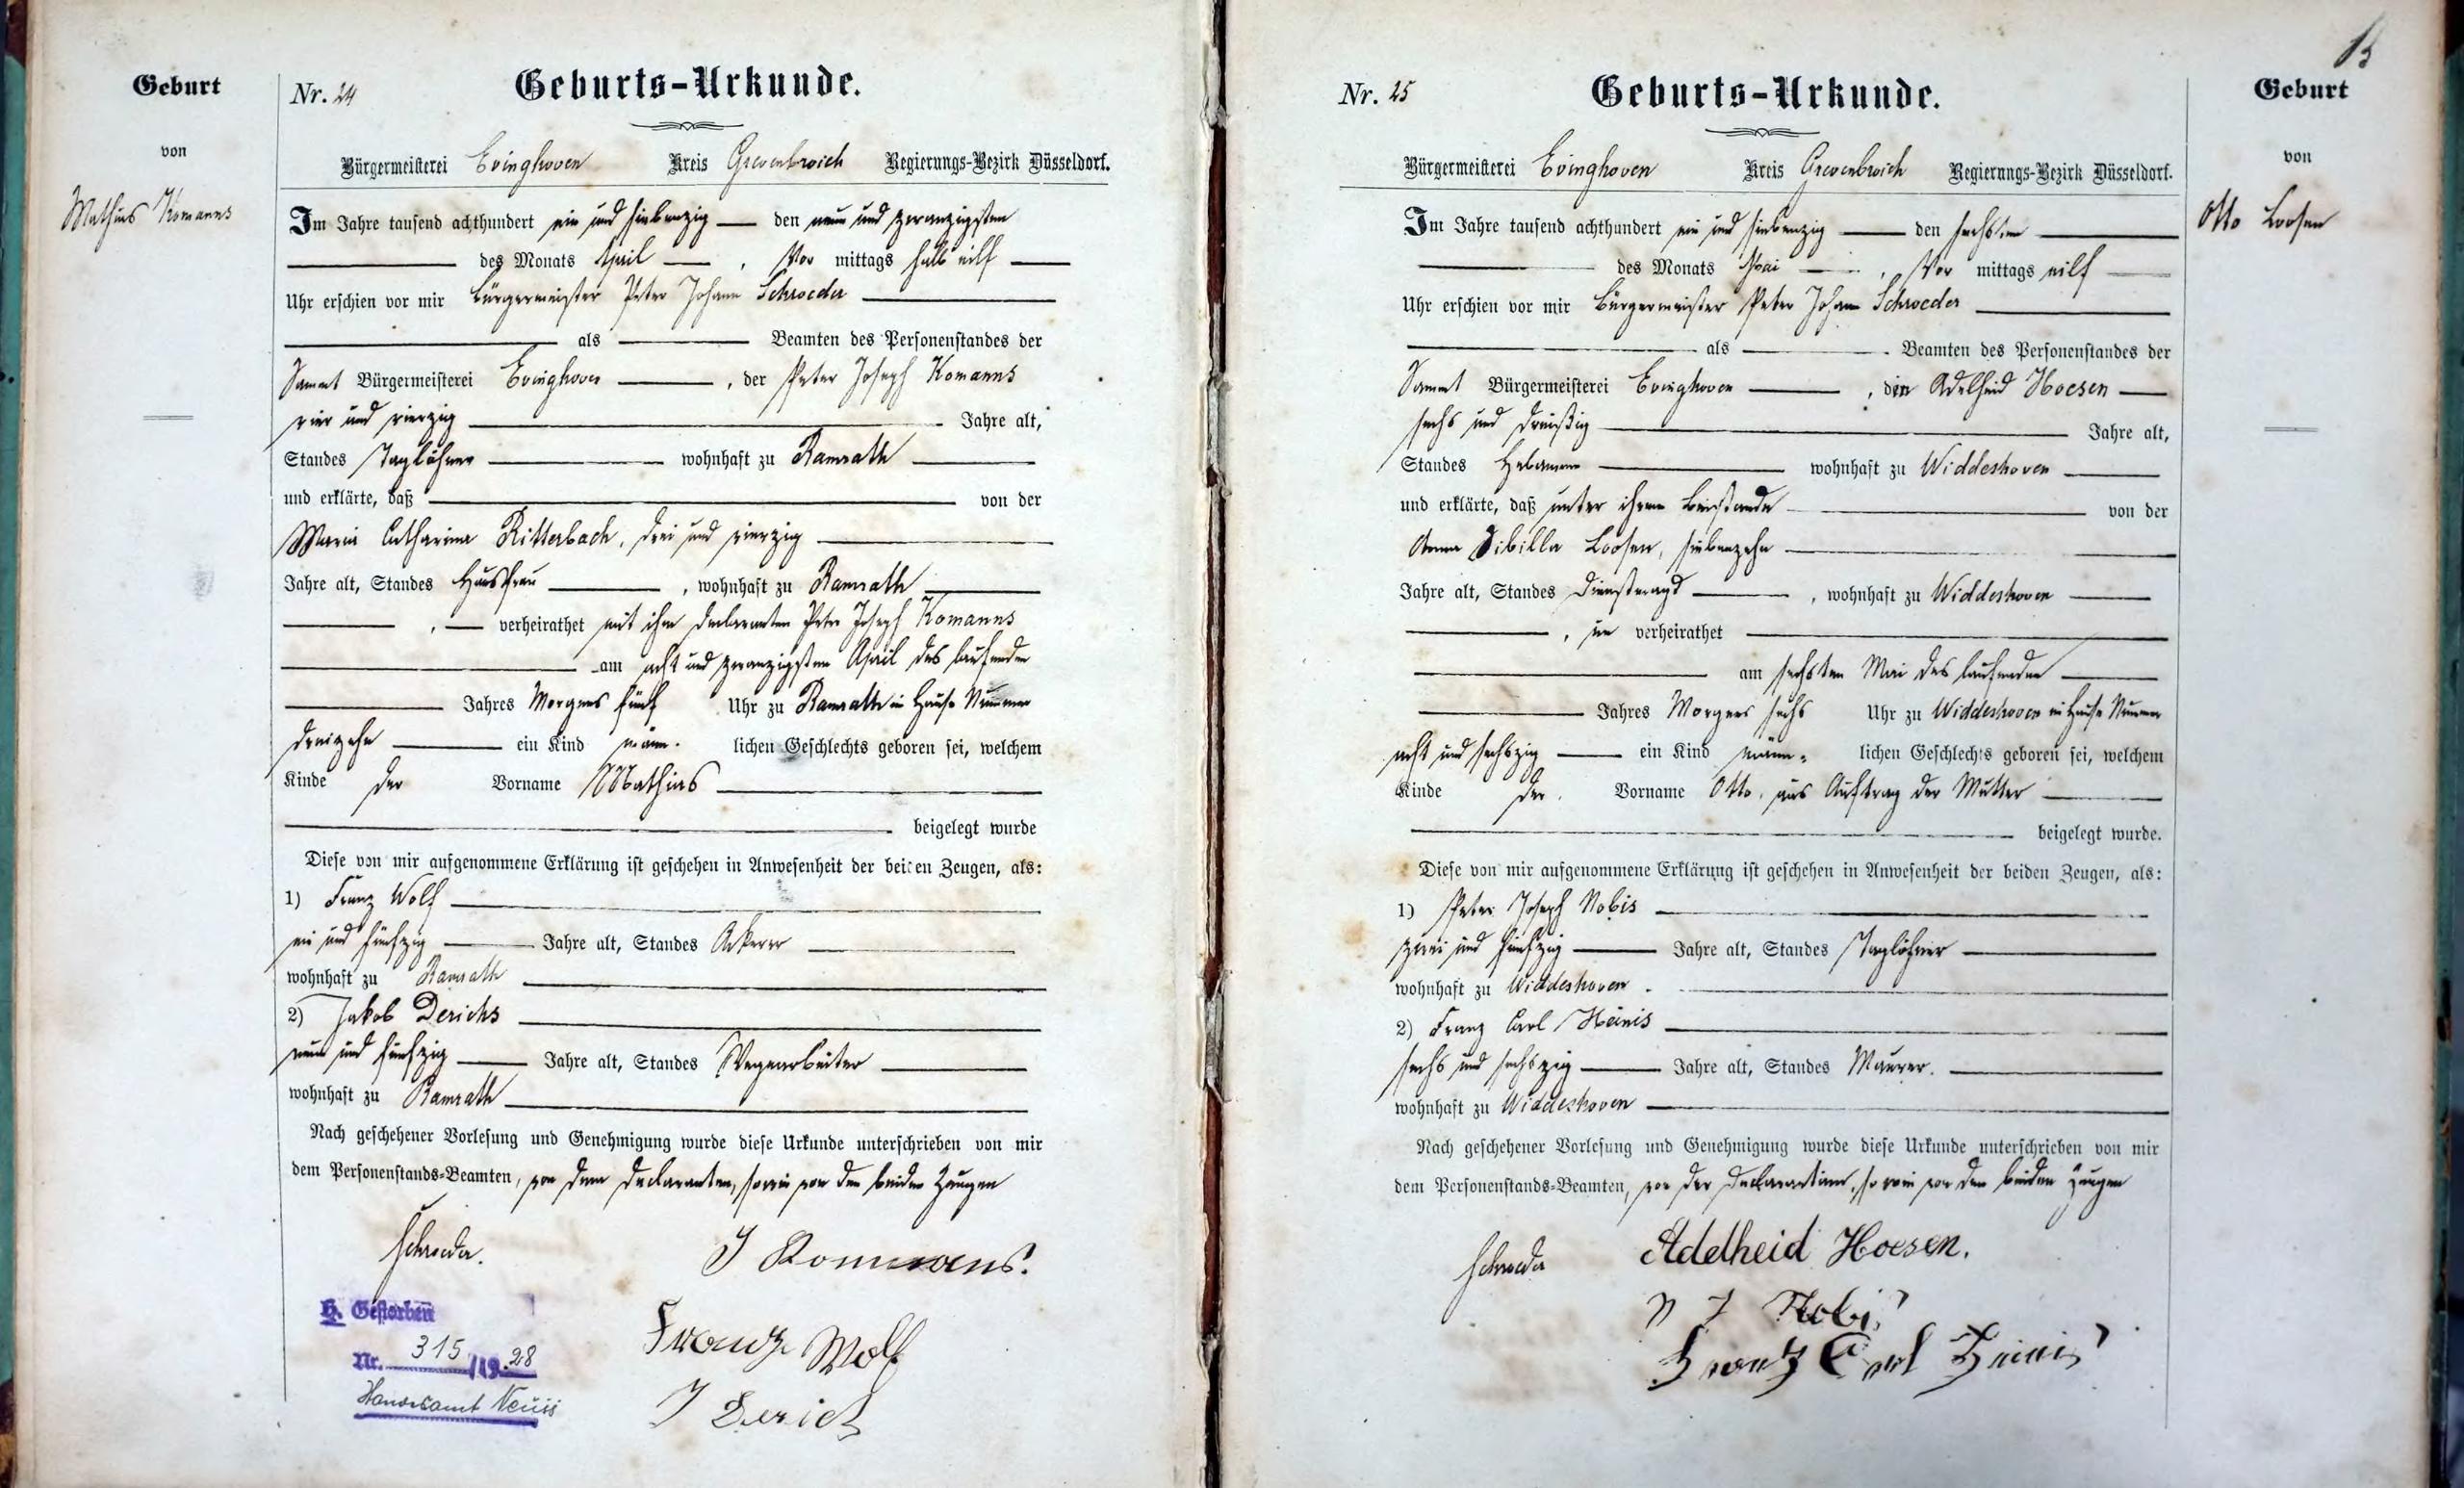 Geburt
von
Mathias Komanns
Nr. 24
Geburts-Urkunde.
Bürgermeisterei Evinghoven Kreis Grevenbroich Regierungs-Bezirk Düsseldorf.
Im Jahre tausend achthundert ein und siebenzig den neun und zwanzigsten
des Monats April, Vor mittags halb eilf
Uhr erschien vor mir Bürgermeister Peter Johann Schroeder
als Beamten des Personenstandes der
Sammt Bürgermeisterei Evinghoven, der Peter Joseph Komanns
vier und vierzig Jahre alt,
Standes Taglöhner wohnhaft zu Ramrath
und erklärte, daß von der
Maria Catharina Ritterbach, drei und vierzig
Jahre alt, Standes Hausfrau, wohnhaft zu Ramrath
, verheirathet mit ihm Declaranten Peter Joseph Komanns
am acht und zwanzigsten April des laufenden
Jahres Morgens fünf Uhr zu Ramrath in Hause Nummer
dreizehn ein Kind männ- lichen Geschlechts geboren sei, welchem
Kinde der Vorname Mathias
beigelegt wurde
Diese von mir aufgenommene Erklärung ist geschehen in Anwesenheit der beiden Zeugen, als:
1) Franz Wolf
ein und fünfzig Jahre alt, Standes Ackerer
wohnhaft zu Ramrath
2) Jakob Derichs
neun und fünfzig Jahre alt, Standes Wegearbeiter
wohnhaft zu Ramrath
Nach geschehener Vorlesung und Genehmigung wurde diese Urkunde unterschrieben von mir
dem Personenstands-Beamten, von dem Declaranten, sowie von den beiden Zeugen
Schroeder.
J Kommans.
Franz Wolf
J Derichs
H. Gestorben
Nr. 315 /19.28
Standesamt Neuss
Nr. 25
Geburts-Urkunde.
Bürgermeisterei Evinghoven Kreis Grevenbroich Regierungs-Bezirk Düsseldorf.
Im Jahre tausend achthundert ein und siebenzig den sechsten
des Monats Mai, Vor mittags eilf
Uhr erschien vor mir Bürgermeister Peter Johann Schroeder
als Beamten des Personenstandes der
Sammt Bürgermeisterei Evinghoven, die Adelheid Hoesen
sechs und dreißig Jahre alt,
Standes Hebamme wohnhaft zu Widdeshoven
und erklärte, daß unter ihrem Beistande von der
Anna Sibilla Loosen, siebenzehn
Jahre alt, Standes Dienstmagd, wohnhaft zu Widdeshoven
, un verheirathet
am sechsten Mai des laufenden
Jahres Morgens sechs Uhr zu Widdeshoven in Hause Nummer
acht und sechszig ein Kind männ- lichen Geschlechts geboren sei, welchem
Kinde der Vorname Otto, aus Auftrag der Mutter
beigelegt wurde.
Diese von mir aufgenommene Erklärung ist geschehen in Anwesenheit der beiden Zeugen, als:
1) Peter Joseph Nobis
zwei und fünfzig Jahre alt, Standes Taglöhner
wohnhaft zu Widdeshoven
2) Franz Carl Heinis
sechs und sechszig Jahre alt, Standes Maurer.
wohnhaft zu Widdeshoven
Nach geschehener Vorlesung und Genehmigung wurde diese Urkunde unterschrieben von mir
dem Personenstands-Beamten, von der Declarantinn, so wie von den beiden Zeugen
Schroeder
Adelheid Hoesen.
P J Nobis
Frantz Carl Heinis
Geburt
von
Otto Loosen